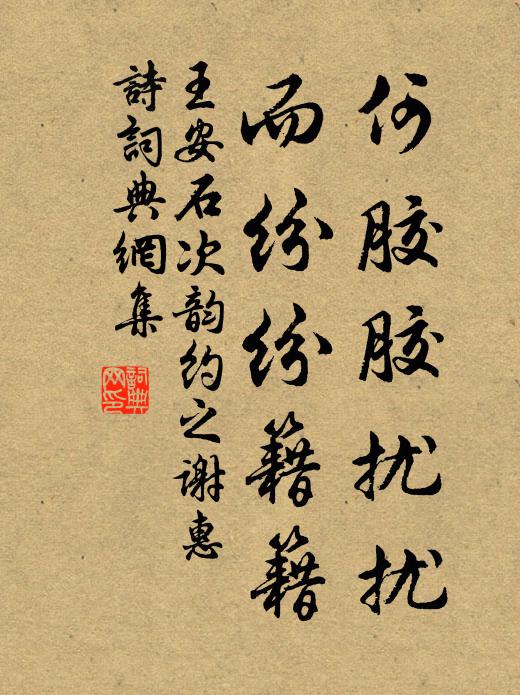 何胶胶扰扰
而纷纷籍籍
王安石次韵约之谢惠
詩詞典網集
詞典网印